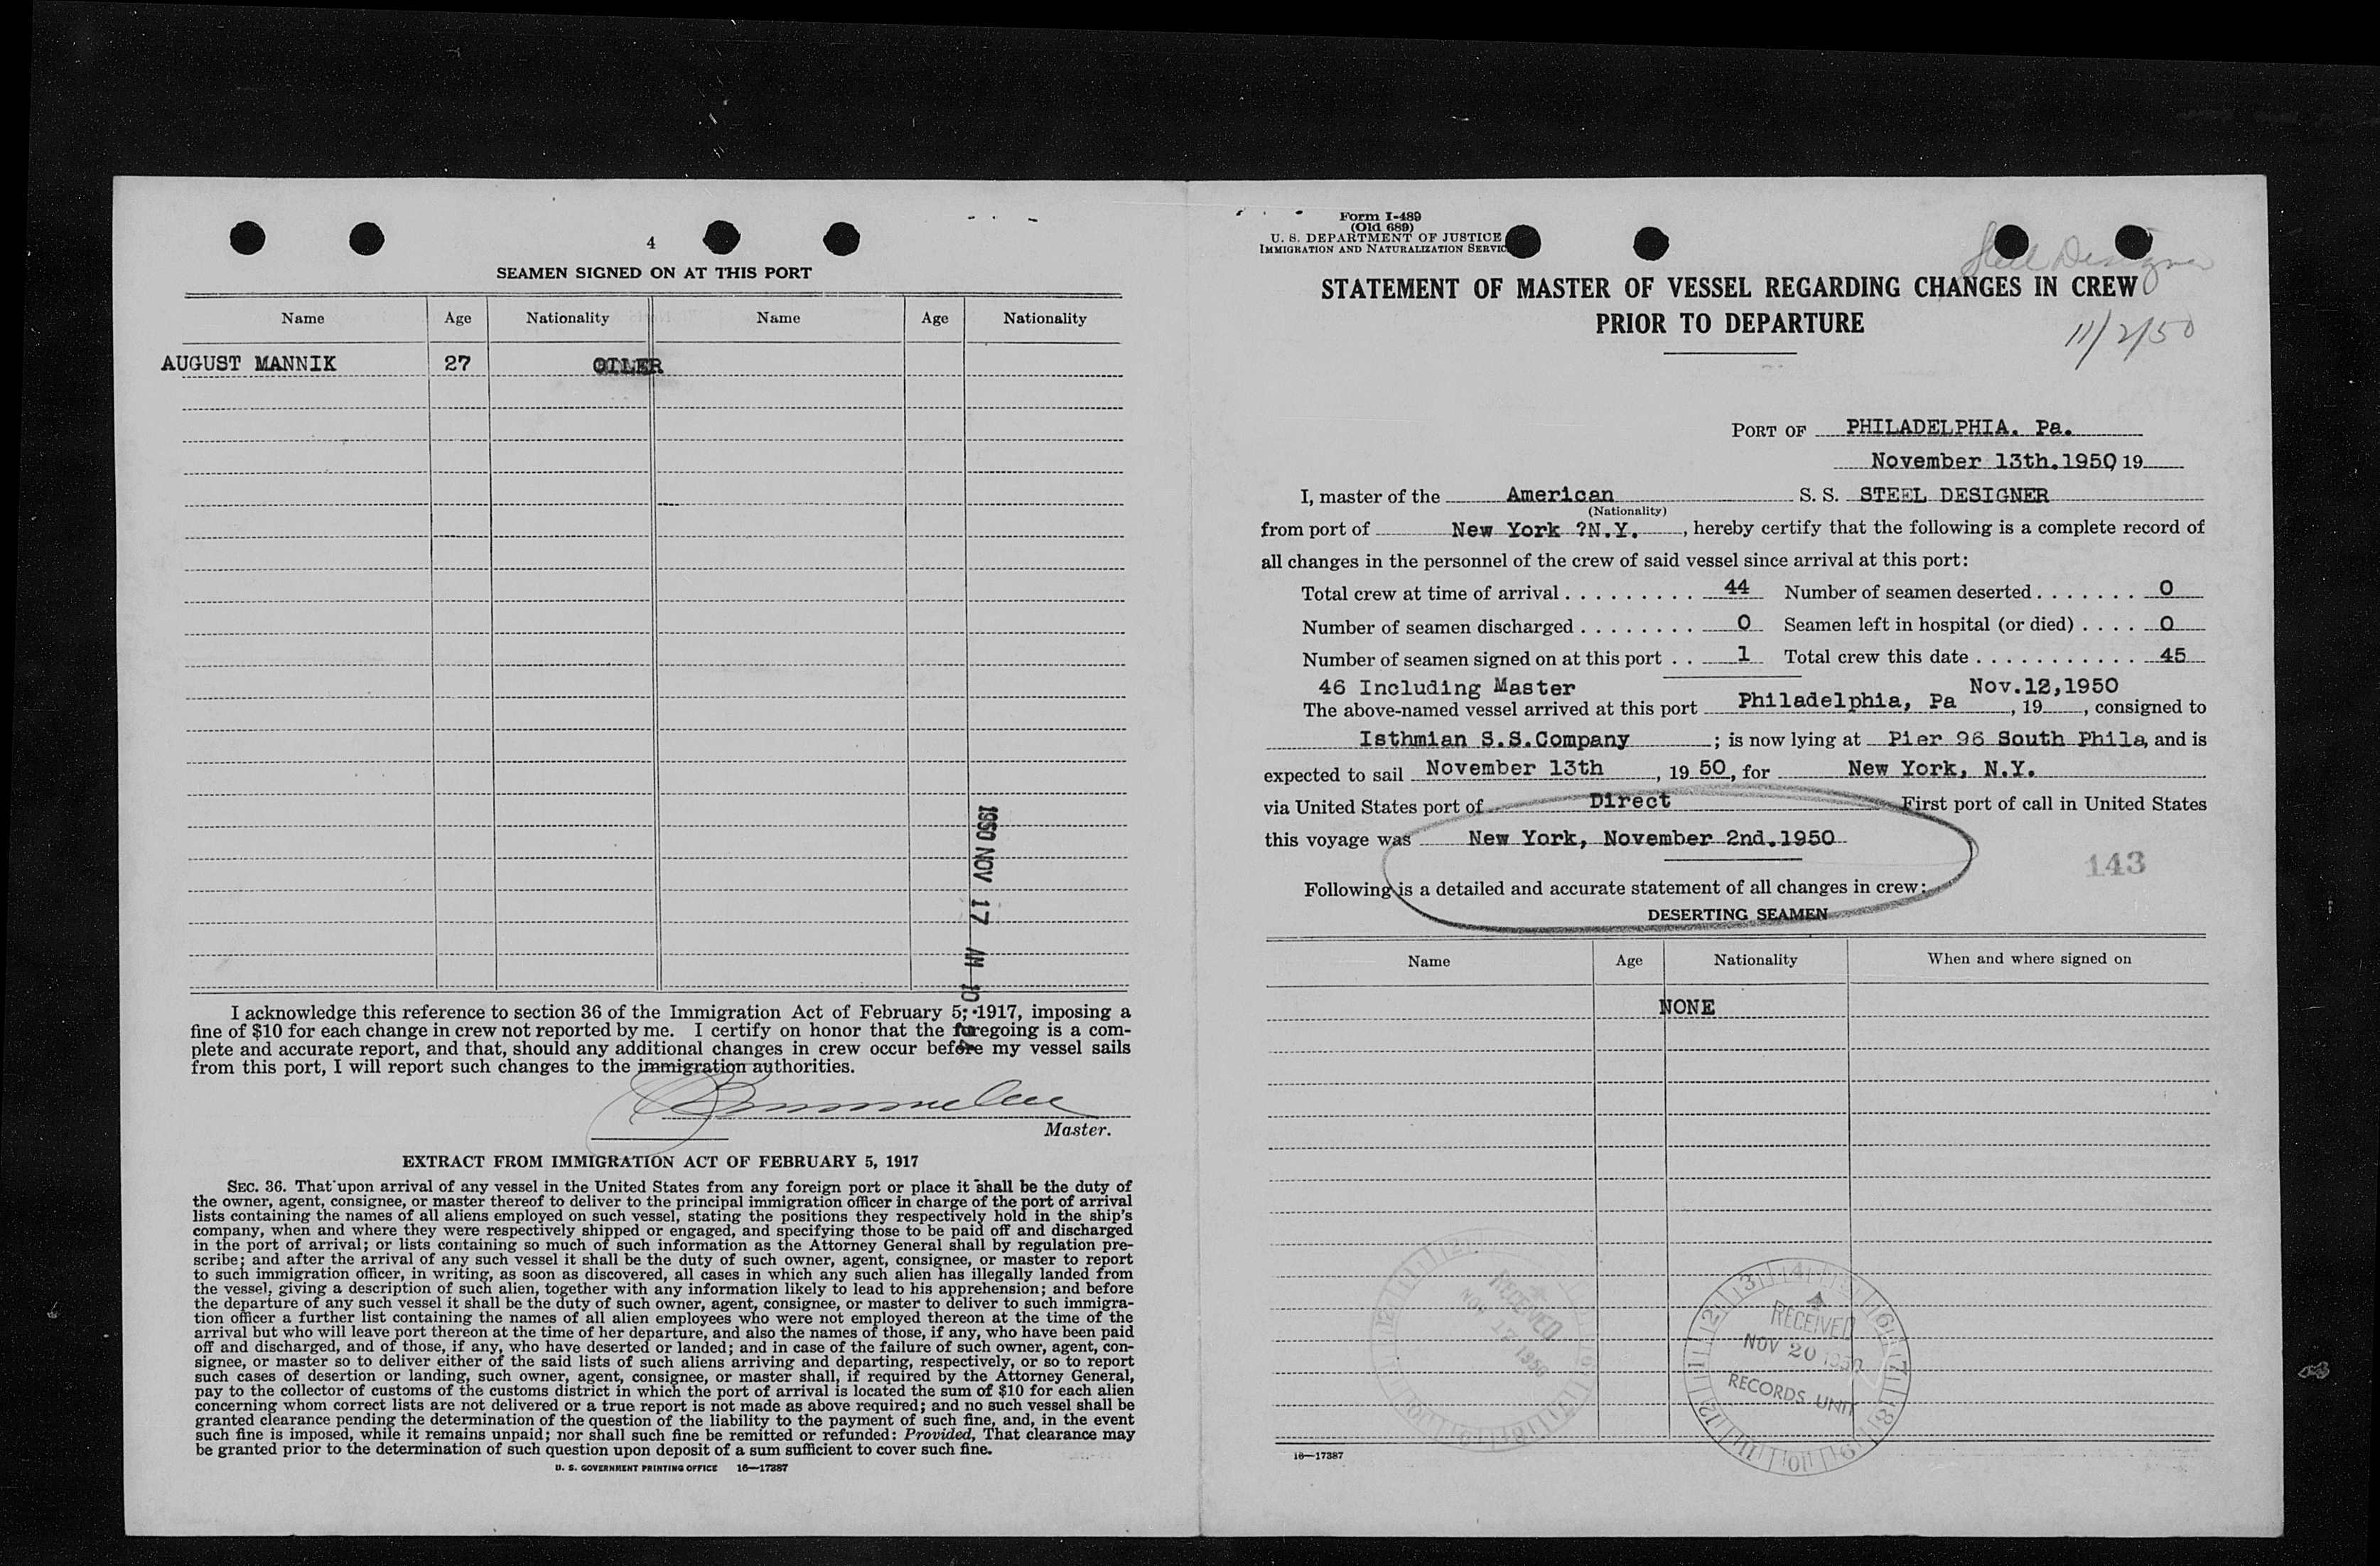 4
SEAMEN SIGNED ON AT THIS PORT
Name Age Nationality Name Age Nationality
AUGUST MANNIK 27 OILER
1950 NOV 17 AM 10
I acknowledge this reference to section 36 of the Immigration Act of February 5, 1917, imposing a
fine of $10 for each change in crew not reported by me. I certify on honor that the foregoing is a com-
plete and accurate report, and that, should any additional changes in crew occur before my vessel sails
from this port, I will report such changes to the immigration authorities.
Master.
EXTRACT FROM IMMIGRATION ACT OF FEBRUARY 5, 1917
SEC. 36. That upon arrival of any vessel in the United States from any foreign port or place it shall be the duty of
the owner, agent, consignee, or master thereof to deliver to the principal immigration officer in charge of the port of arrival
lists containing the names of all aliens employed on such vessel, stating the positions they respectively hold in the ship's
company, when and where they were respectively shipped or engaged, and specifying those to be paid off and discharged
in the port of arrival; or lists containing so much of such information as the Attorney General shall by regulation pre-
scribe; and after the arrival of any such vessel it shall be the duty of such owner, agent, consignee, or master to report
to such immigration officer, in writing, as soon as discovered, all cases in which any such alien has illegally landed from
the vessel, giving a description of such alien, together with any information likely to lead to his apprehension; and before
the departure of any such vessel it shall be the duty of such owner, agent, consignee, or master to deliver to such immigra-
tion officer a further list containing the names of all alien employees who were not employed thereon at the time of the
arrival but who will leave port thereon at the time of her departure, and also the names of those, if any, who have been paid
off and discharged, and of those, if any, who have deserted or landed; and in case of the failure of such owner, agent, con-
signee, or master so to deliver either of the said lists of such aliens arriving and departing, respectively, or so to report
such cases of desertion or landing, such owner, agent, consignee, or master shall, if required by the Attorney General,
pay to the collector of customs of the customs district in which the port of arrival is located the sum of $10 for each alien
concerning whom correct lists are not delivered or a true report is not made as above required; and no such vessel shall be
granted clearance pending the determination of the question of the liability to the payment of such fine, and, in the event
such fine is imposed, while it remains unpaid; nor shall such fine be remitted or refunded: Provided, That clearance may
be granted prior to the determination of such question upon deposit of a sum sufficient to cover such fine.
U. S. GOVERNMENT PRINTING OFFICE 16—17387
Form I-489
(Old 689)
U. S. DEPARTMENT OF JUSTICE
IMMIGRATION AND NATURALIZATION SERVICE
Steel Designer
STATEMENT OF MASTER OF VESSEL REGARDING CHANGES IN CREW
PRIOR TO DEPARTURE
11/2/50
PORT OF PHILADELPHIA. Pa.
November 13th.1950 19
I, master of the American S. S. STEEL DESIGNER
(Nationality)
from port of New York ?N.Y. , hereby certify that the following is a complete record of
all changes in the personnel of the crew of said vessel since arrival at this port:
Total crew at time of arrival . . . . . . . . . 44 Number of seamen deserted . . . . . . . 0
Number of seamen discharged . . . . . . . . 0 Seamen left in hospital (or died) . . . . 0
Number of seamen signed on at this port . . 1 Total crew this date . . . . . . . . . . . 45
46 Including Master Nov.12,1950
The above-named vessel arrived at this port Philadelphia, Pa , 19 , consigned to
Isthmian S.S.Company ; is now lying at Pier 96 South Phila, and is
expected to sail November 13th , 19 50, for New York, N.Y.
via United States port of Direct First port of call in United States
this voyage was New York, November 2nd.1950
143
Following is a detailed and accurate statement of all changes in crew:
DESERTING SEAMEN
Name Age Nationality When and where signed on
NONE
RECEIVED
NOV 1950
RECEIVED
NOV 20 1950
RECORDS UNIT
16—17387